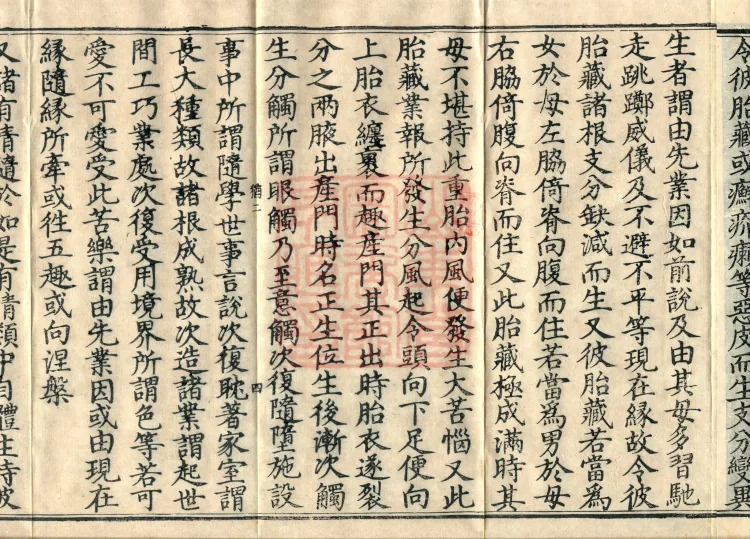 令彼胎藏或癬疥癩等惡皮而生支分變異
生者謂由先業因如前說及由其母多習馳
走跳躑威儀及不避不平等現在緣故令彼
胎藏諸根支分缺減而生又彼胎藏若當為
女於母左脇倚脊向腹而住若當為男於母
右脇倚腹向脊而住又此胎藏極成滿時其
母不堪持此重胎內風便發生大苦惱又此
胎藏業報所發生分風起令頭向下足便向
上胎衣纏裹而趣產門其正出時胎衣遂裂
分之兩腋出產門時名正生位生後漸次觸
生分觸所謂眼觸乃至意觸次復隨墮施設
事中所謂隨學世事言說次復耽著家室謂
長大種類故諸根成熟故次造諸業謂起世
間工巧業處次復受用境界所謂色等若可
愛不可愛受此苦樂謂由先業因或由現在
緣隨緣所牽或往五趣或向涅槃
又諸有情隨於如是有情類中自體生時彼
四